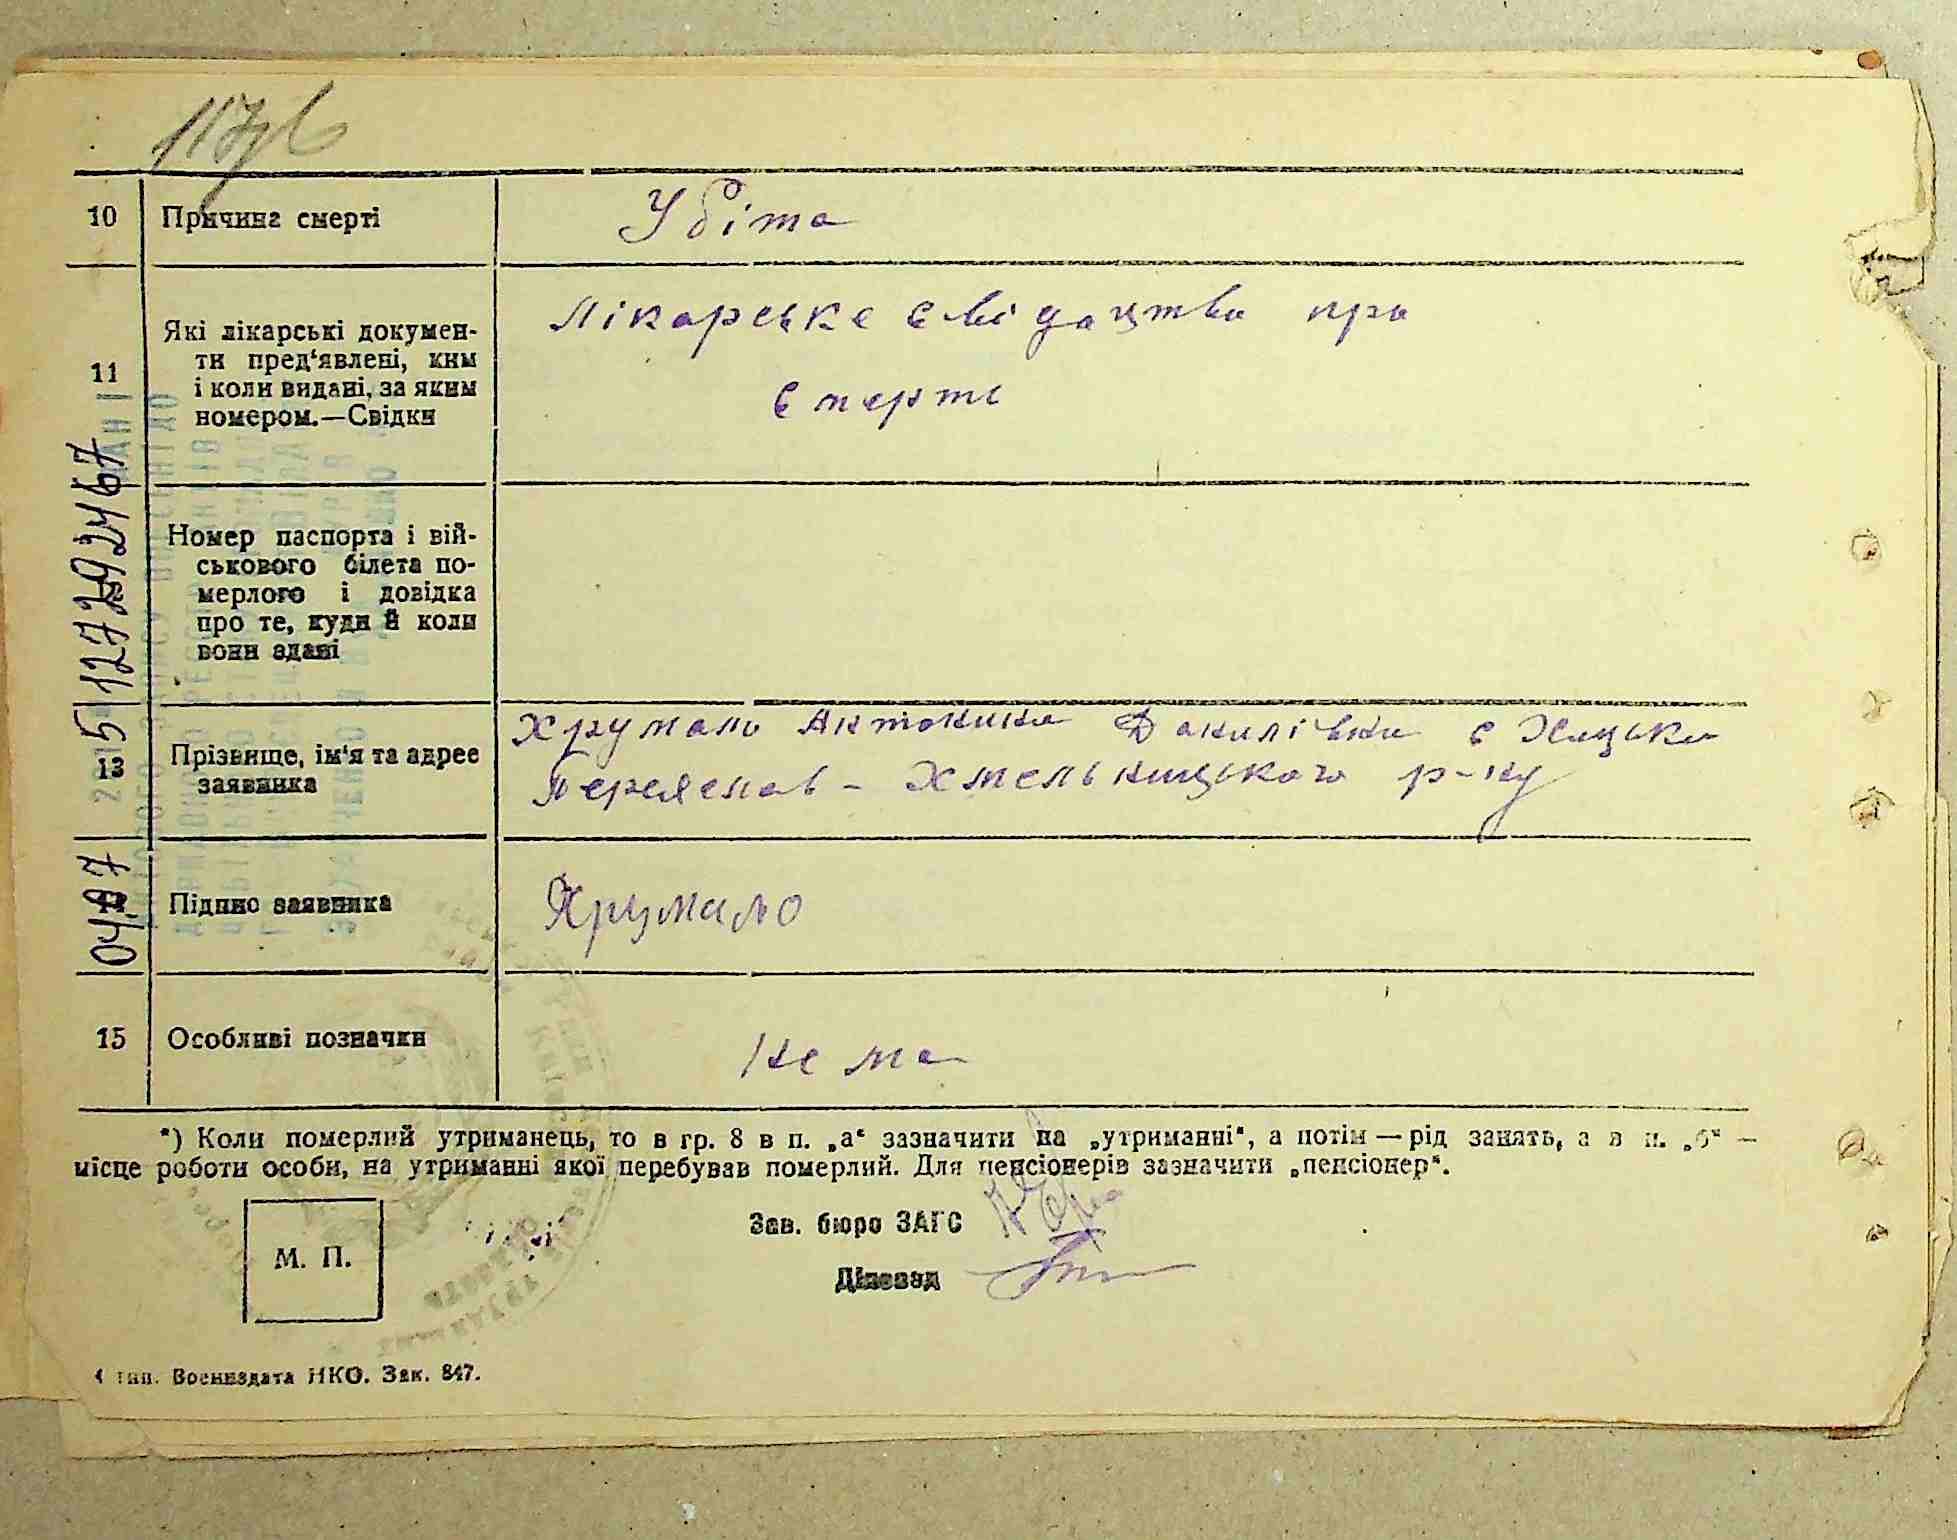 117зв
10 Причина смерті Убіта
11 Які лікарські докумен-
ти пред'явлені, ким
і коли видані, за яким
номером.—Свідки
Лікарське свідацтво про
смерть
Номер паспорта і вій-
ськового білета по-
мерлого і довідка
про те, куди й коли
вони здані
13 Прізвище, ім'я та адрес
заявника
Хрумало Антоніна Данилівна с Хоцьки
Переяслав-Хмельницького р-ну
Підпис заявника Хрумало
15 Особливі позначки Нема
*) Коли померлий утриманець, то в гр. 8 в п. „а“ зазначити на „утриманні“, а потім — рід занять, а в п. „б“ —
місце роботи особи, на утриманні якої перебував померлий. Для пенсіонерів зазначити „пенсіонер“.
М. П.
Зав. бюро ЗАГС
Діловод
4 тип. Воениздата НКО. Зак. 847.
0497
5 1277292467